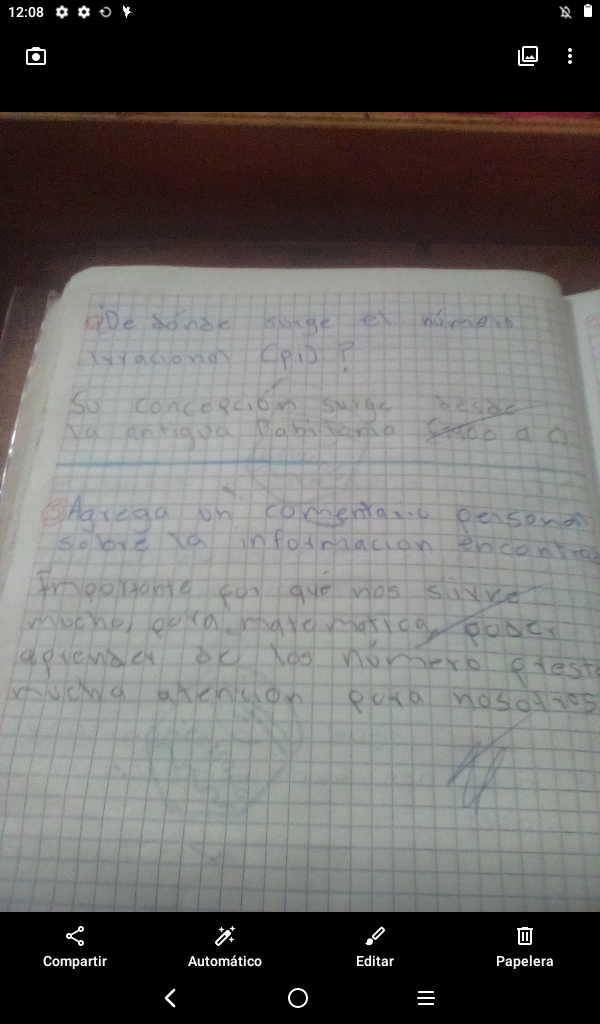 12:08
a)De dónde surge el número
irracional (pi)?
Su concepción surge desde
la antigua Babilonia
Agrega un comentario personal
sobre la informacion
Importante por qué nos sirve
mucho, para matematica, poder
aprender de los número
mucha atención para nosotros
Compartir
Automático
Editar
Papelera